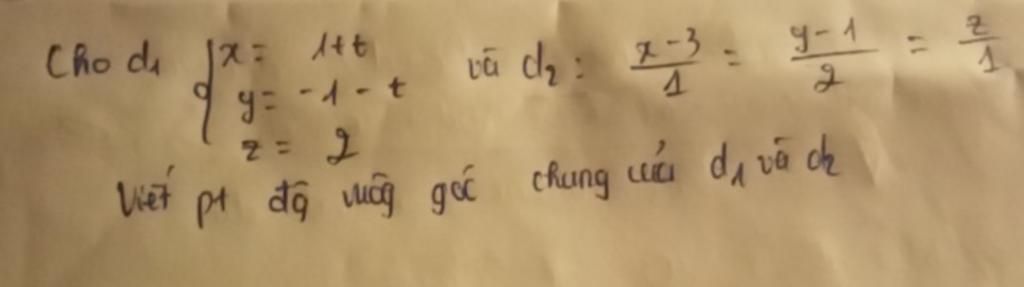 Cho d1 { x = 1+t và d2 : x-3/1 = y-1/2 = z/1
y = -1-t
z = 2
Viết pt đg vuôg góc chung của d1 và d2